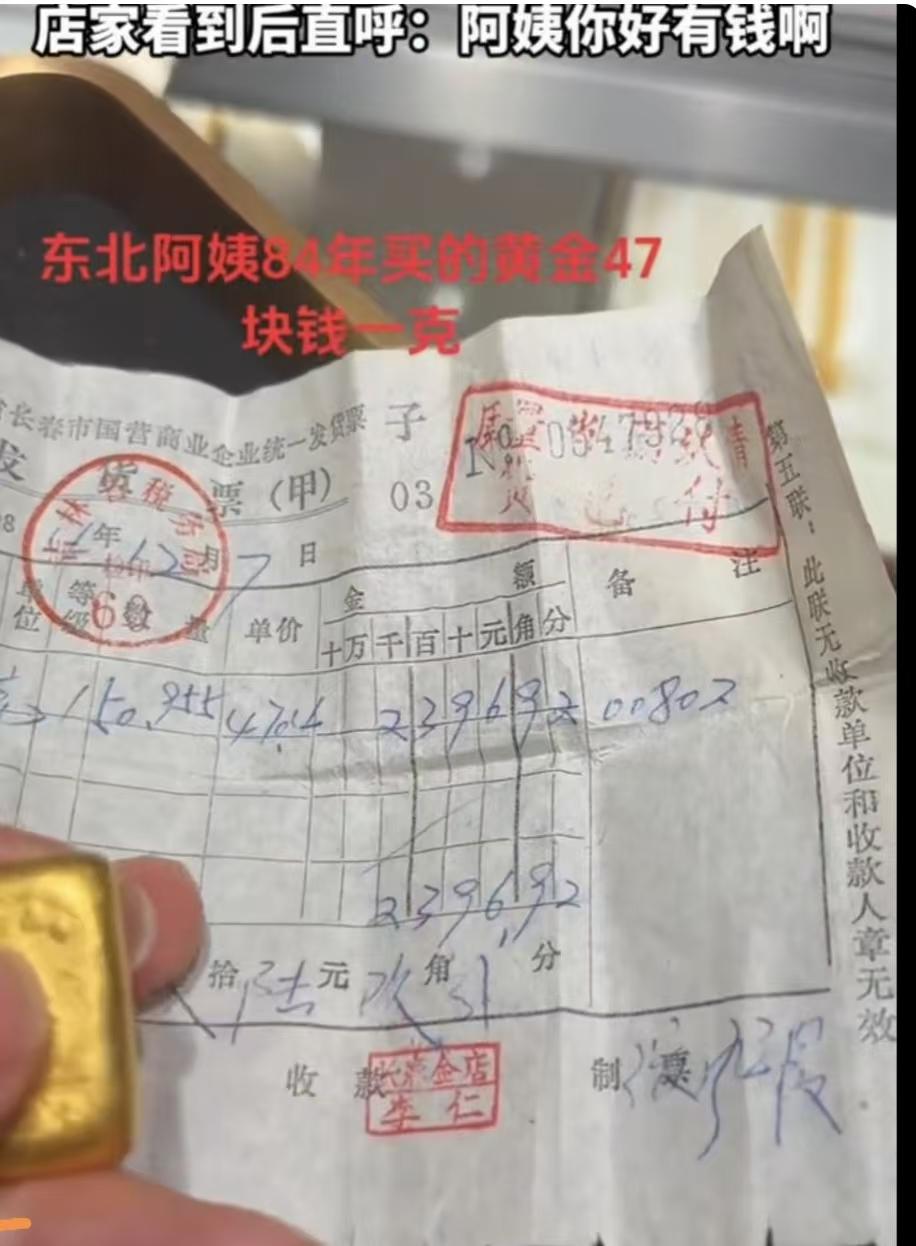 店家看到后直呼：阿姨你好有钱啊
东北阿姨84年买的黄金47
块钱一克
长春市国营商业企业统一发货票 子
发货票（甲） 03
No 0347928
现
付
年12月7日
单位 等级 数量 单价 金额 备注
十万千百十元角分
1 50.955 47.04 239692 00802
2396.92
拾陆元玖角分
收款 制票
金店
李仁
第五联：此联无收款单位和收款人章无效